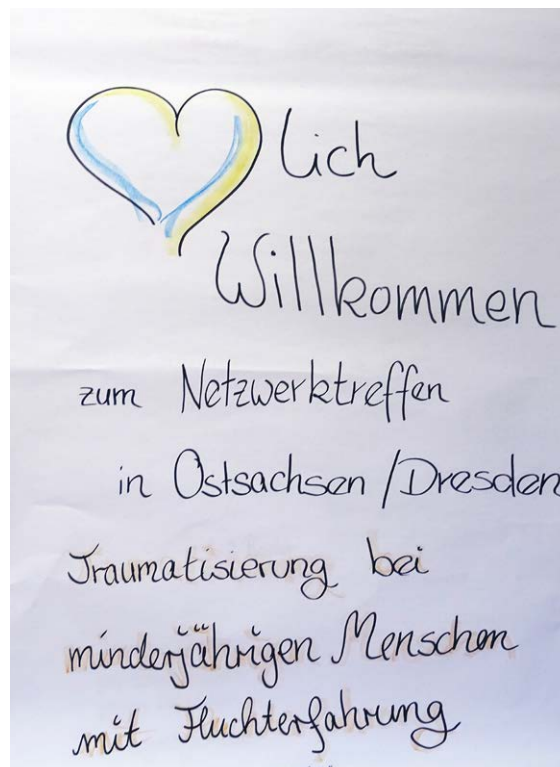 lich
Willkommen
zum Netzwerktreffen
in Ostsachsen / Dresden
Traumatisierung bei
minderjährigen Menschen
mit Fluchterfahrung